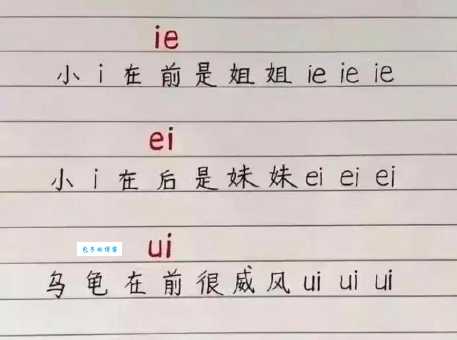 ie
小 i 在 前 是 姐 姐 ie ie ie
ei
小 i 在 后 是 妹 妹 ei ei ei
ui
乌 龟 在 前 很 威 风 ui ui ui